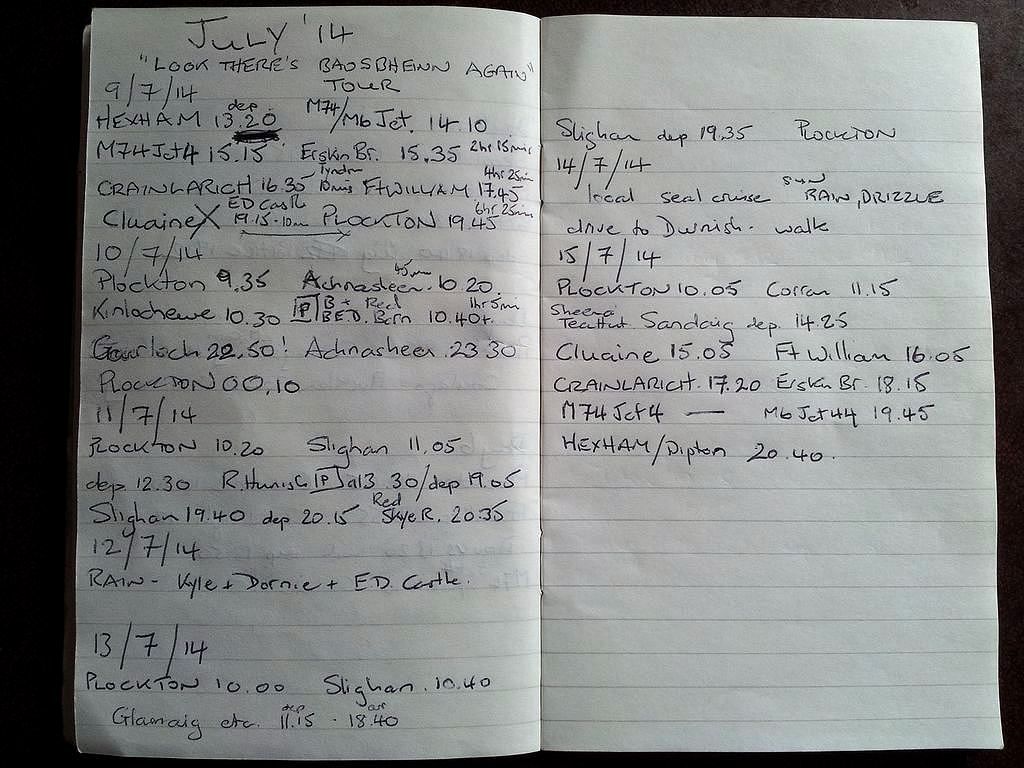 JULY '14
"LOOK THERE'S BAOSBHEINN AGAIN"
TOUR
9/7/14
HEXHAM dep 13.20 M74/M6 Jct. 14.10
M74 Jct 4 15.15 Erskin Br. 15.35 2hr 15mins
CRAINLARICH 16.35 Tyndrm 10mins Ft WILLIAM 17.45 4hr 25min
Cluaine X ED Castle 19.15 - 10m PLOCKTON 19.45 6hr 25min
10/7/14
Plockton 9.35 Achnasheen 45mn 10.20.
Kinlochewe 10.30 P B + Red BED. Barn 10.40+. 1hr 5min
Gairloch 22.50! Achnasheen 23.30
PLOCKTON 00.10
11/7/14
PLOCKTON 10.20 Slighan 11.05
dep 12.30 R. Hunish P a13 30/dep 19.05
Slighan 19.40 dep 20.15 Red Skye R. 20.35
12/7/14
RAIN - Kyle + Dornie + E.D. Castle.
13/7/14
PLOCKTON 10.00 Slighan. 10.40
Glamaig etc. dep 11.15 - arr 18.40
Slighan dep 19.35 PLOCKTON
14/7/14
local seal cruise SUN RAIN, DRIZZLE
drive to Duirnish. walk
15/7/14
PLOCKTON 10.05 Corran 11.15
Sheena Tea Hut Sandaig dep. 14.25
Cluaine 15.05 Ft William 16.05
CRAINLARICH. 17.20 Erskin Br. 18.15
M74 Jct 4 — M6 Jct 44 19.45
HEXHAM/Dipton 20.40.